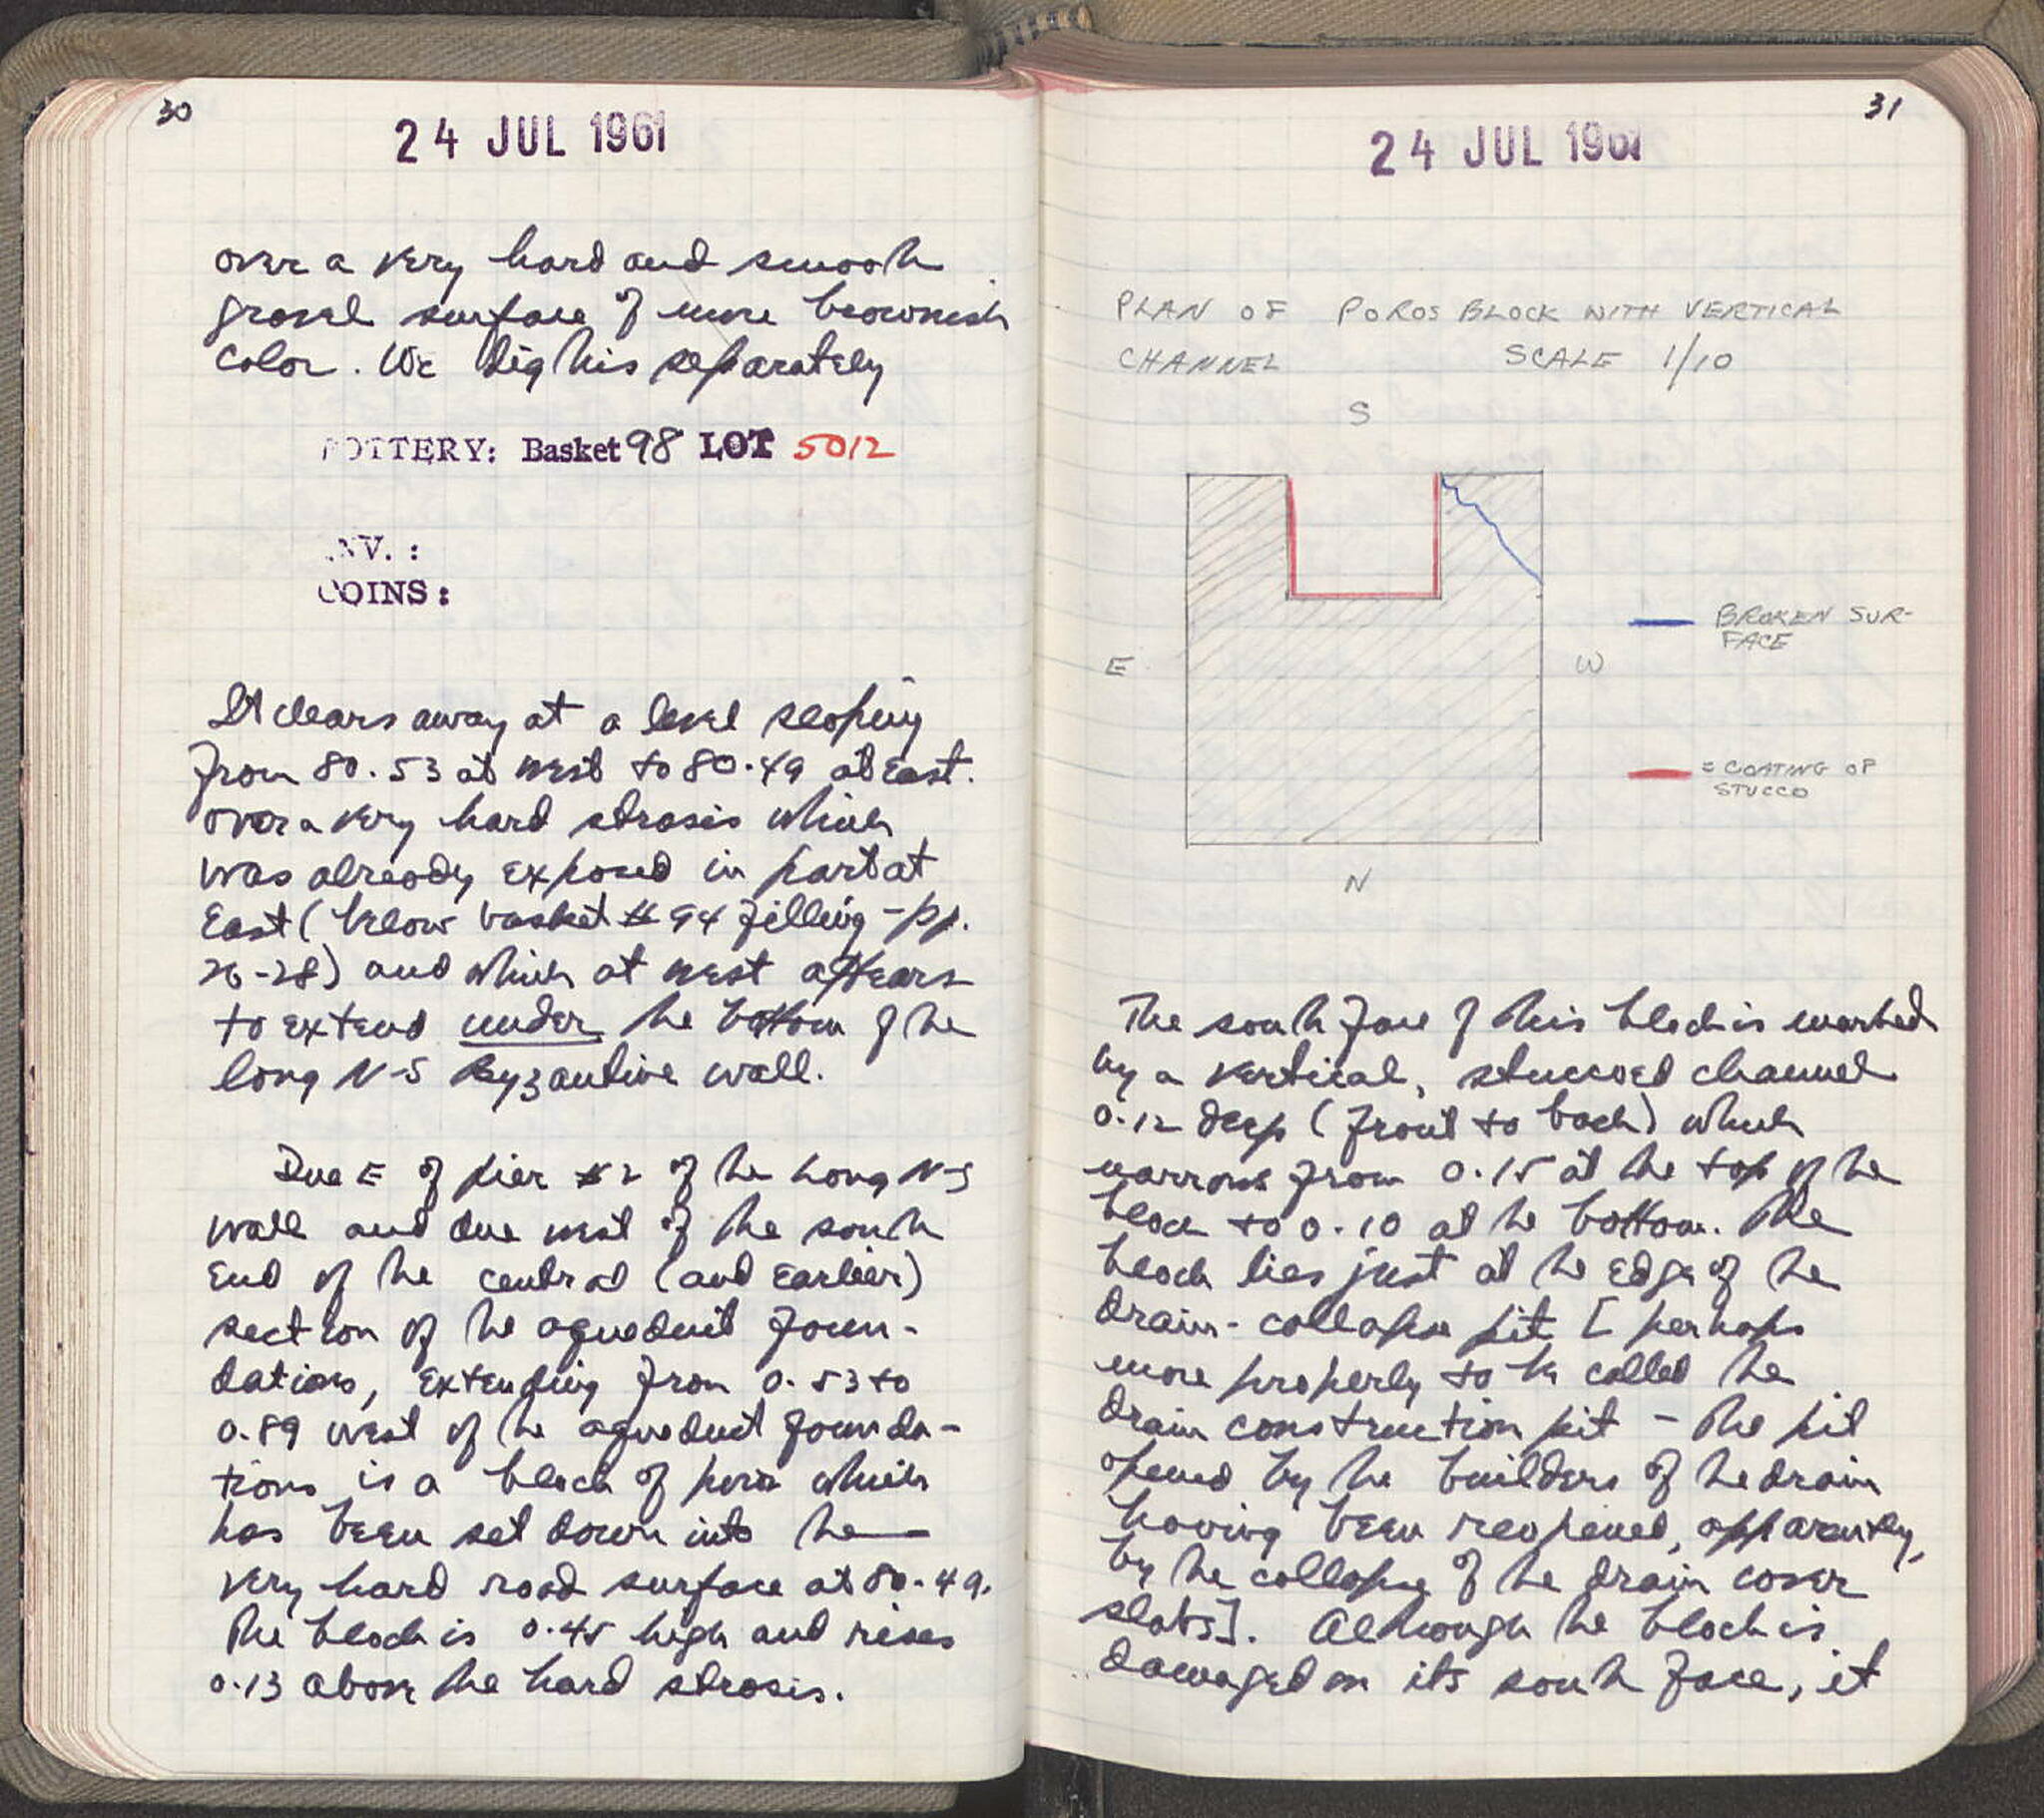 30
24 JUL 1961
over a very hard and smooth
gravel surface of more brownish
color. We dig this separately
POTTERY: Basket 98 LOT 5012
INV. :
COINS :
It clears away at a level sloping
from 80.53 at west to 80.49 at East.
over a very hard strosis which
was already exposed in part at
East (below basket #94 filling - pp.
26-28) and which at west appears
to extend under the bottom of the
long N-S Byzantine wall.
Due E of pier #2 of the Long N-S
wall and due west of the south
End of the central (and Earlier)
section of the aqueduct foun-
dations, Extending from 0.53 to
0.89 west of the aqueduct founda-
tions is a block of poros which
has been set down into the
very hard road surface at 80.49.
The block is 0.45 high and rises
0.13 above the hard strosis.
31
24 JUL 1961
PLAN OF POROS BLOCK WITH VERTICAL
CHANNEL SCALE 1/10
S
E
W
N
BROKEN SUR-
FACE
= COATING OF
STUCCO
The south face of this block is marked
by a vertical, stuccoed channel
0.12 deep (front to back) which
narrows from 0.15 at the top of the
block to 0.10 at the bottom. The
block lies just at the Edge of the
drain-collapse pit [perhaps
more properly to be called the
drain construction pit - the pit
opened by the builders of the drain
having been reopened, apparently,
by the collapse of the drain cover
slabs]. Although the block is
damaged on its south face, it